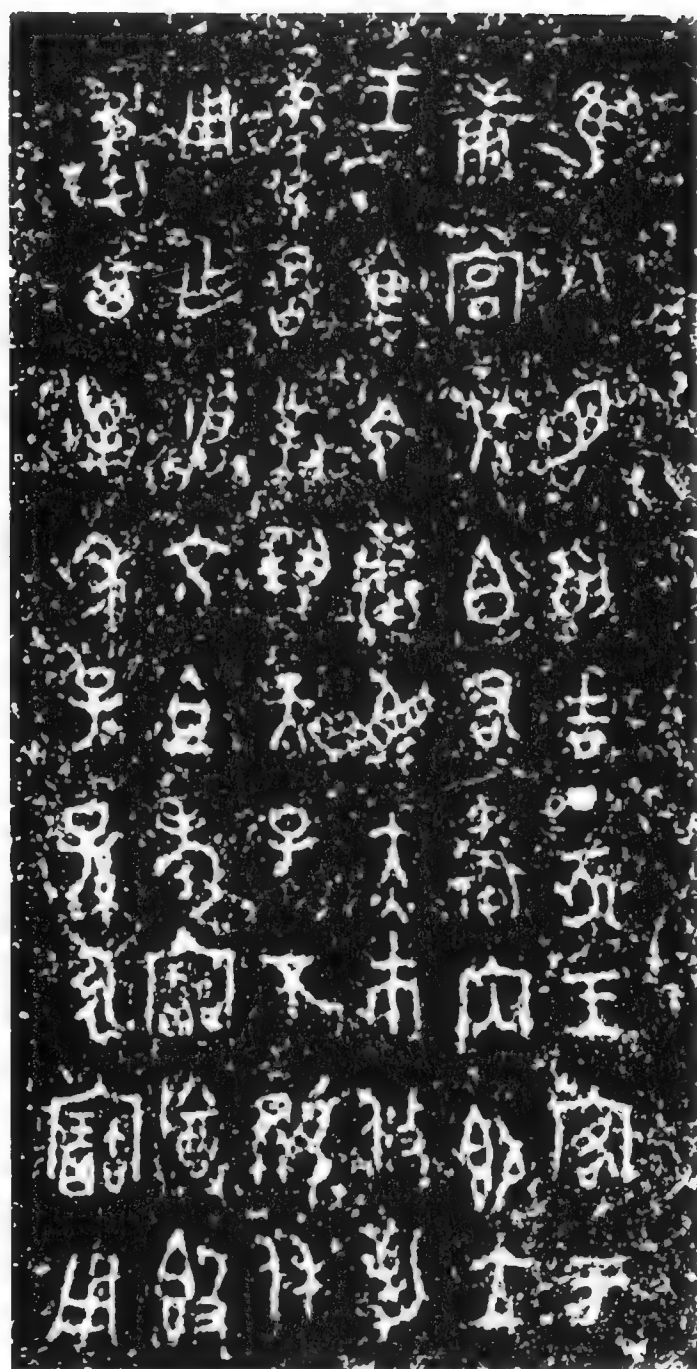 隹八月初吉丁亥王客于
康宮榮白右衛內即立
王曾令衛赤巿攸勒
衛敢對揚天子不顯休
用乍朕文且考寶尊簋
衛其萬年子子孫孫永寶用